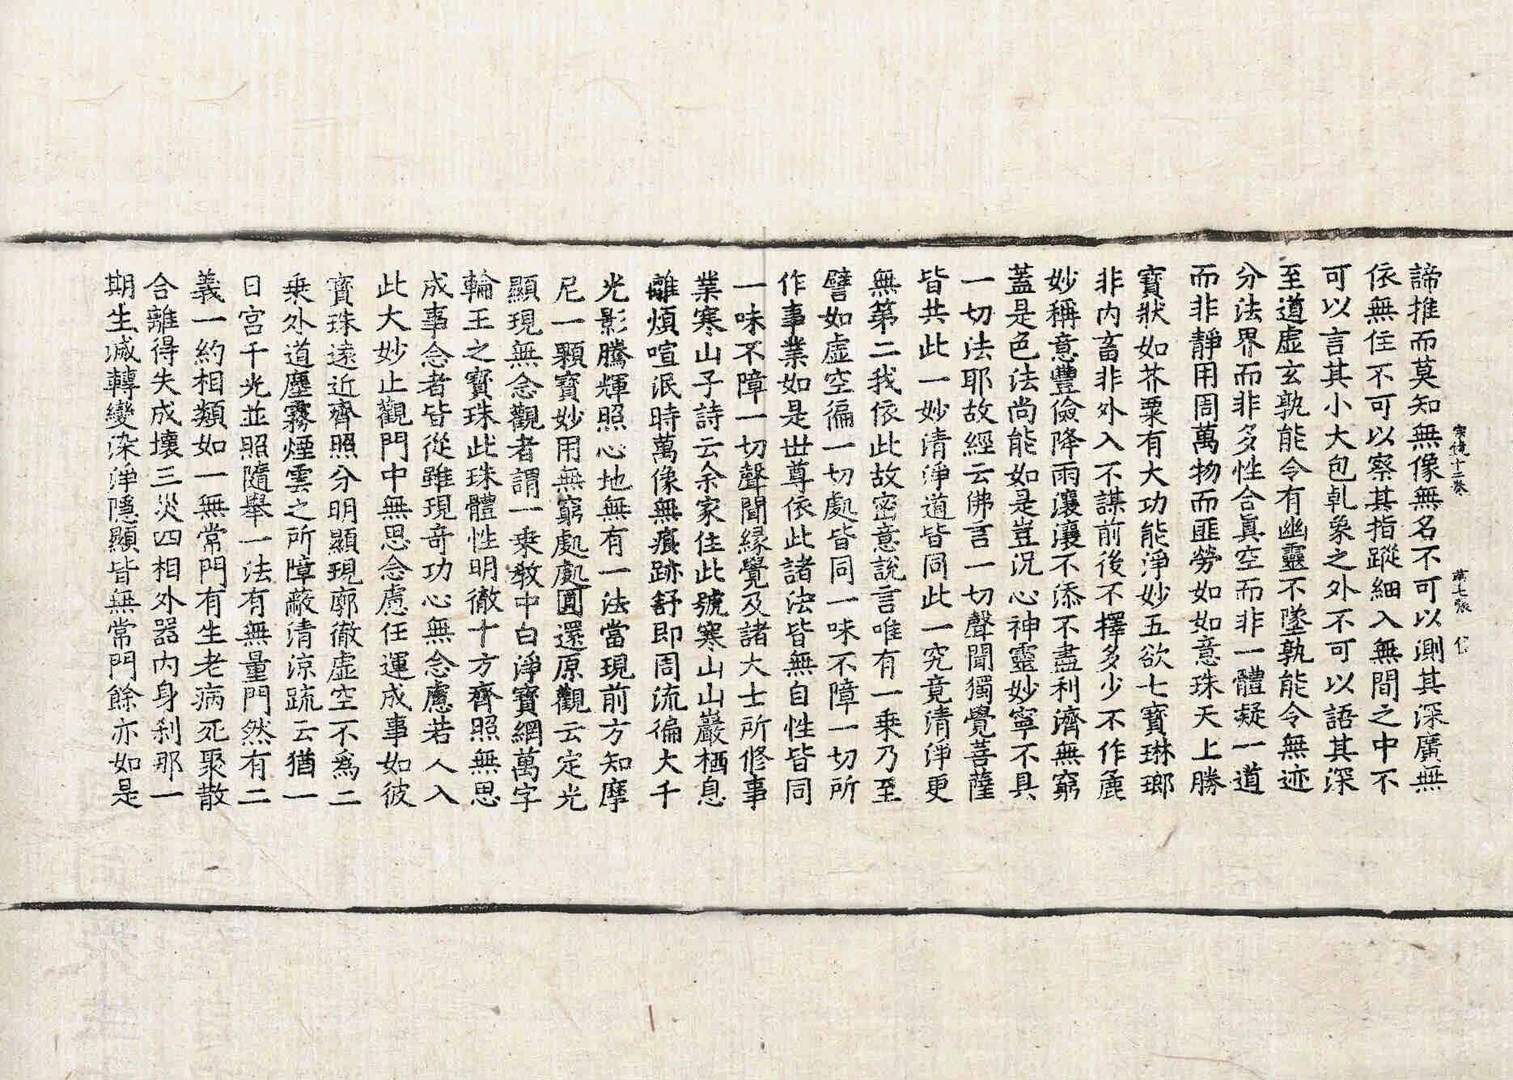 宗鏡十二卷　第七張　信
諦推而莫知無像無名不可以測其深廣無
依無住不可以察其指蹤細入無間之中不
可以言其小大包乹象之外不可以語其深
至道虛玄孰能令有幽靈不墜孰能令無迹
分法界而非多性合真空而非一體凝一道
而非靜用周萬物而匪勞如如意珠天上勝
寶狀如芥粟有大功能淨妙五欲七寶琳瑯
非內畜非外入不謀前後不擇多少不作麁
妙稱意豐儉降雨瀼瀼不添不盡利濟無窮
蓋是色法尚能如是豈況心神靈妙寧不具
一切法耶故經云佛言一切聲聞獨覺菩薩
皆共此一妙清淨道皆同此一究竟清淨更
無第二我依此故密意說言唯有一乘乃至
譬如虛空徧一切處皆同一味不障一切所
作事業如是世尊依此諸法皆無自性皆同
一味不障一切聲聞緣覺及諸大士所修事
業寒山子詩云余家住此號寒山山巖栖息
離煩喧泯時萬像無痕跡舒即周流徧大千
光影騰輝照心地無有一法當現前方知摩
尼一顆寶妙用無窮處處圓還原觀云定光
顯現無念觀者謂一乘教中白淨寶網萬字
輪王之寶珠此珠體性明徹十方齊照無思
成事念者皆從雖現奇功心無念慮若人入
此大妙止觀門中無思念慮任運成事如彼
寶珠遠近齊照分明顯現廓徹虛空不為二
乘外道塵霧煙雲之所障蔽清涼疏云猶一
日宮千光並照隨舉一法有無量門然有二
義一約相類如一無常門有生老病死聚散
合離得失成壞三災四相外器內身刹那一
期生滅轉變染淨隱顯皆無常門餘亦如是